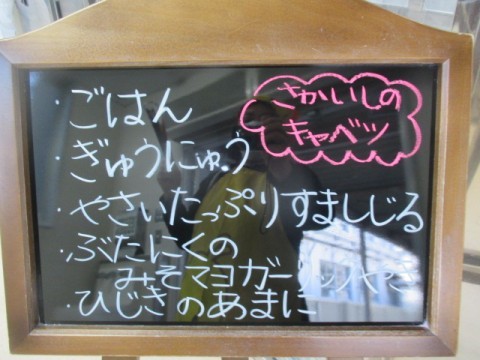 ・ごはん
さかいしの
キャベツ
・ぎゅうにゅう
・やさいたっぷりすましじる
・ぶたにくの
みそマヨガーリックやき
・ひじきのあまに